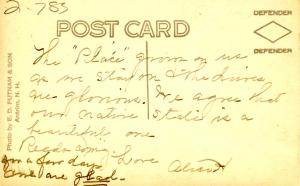 2-783
POST CARD
DEFENDER
DEFENDER
Photo by E. D. PUTNAM & SON
Antrim, N. H.
The "Place" grows on us
as we stay on & the drives
are glorious. We agree that
our native State is a
beautiful one.
coming
Love
for a few days
and are glad.